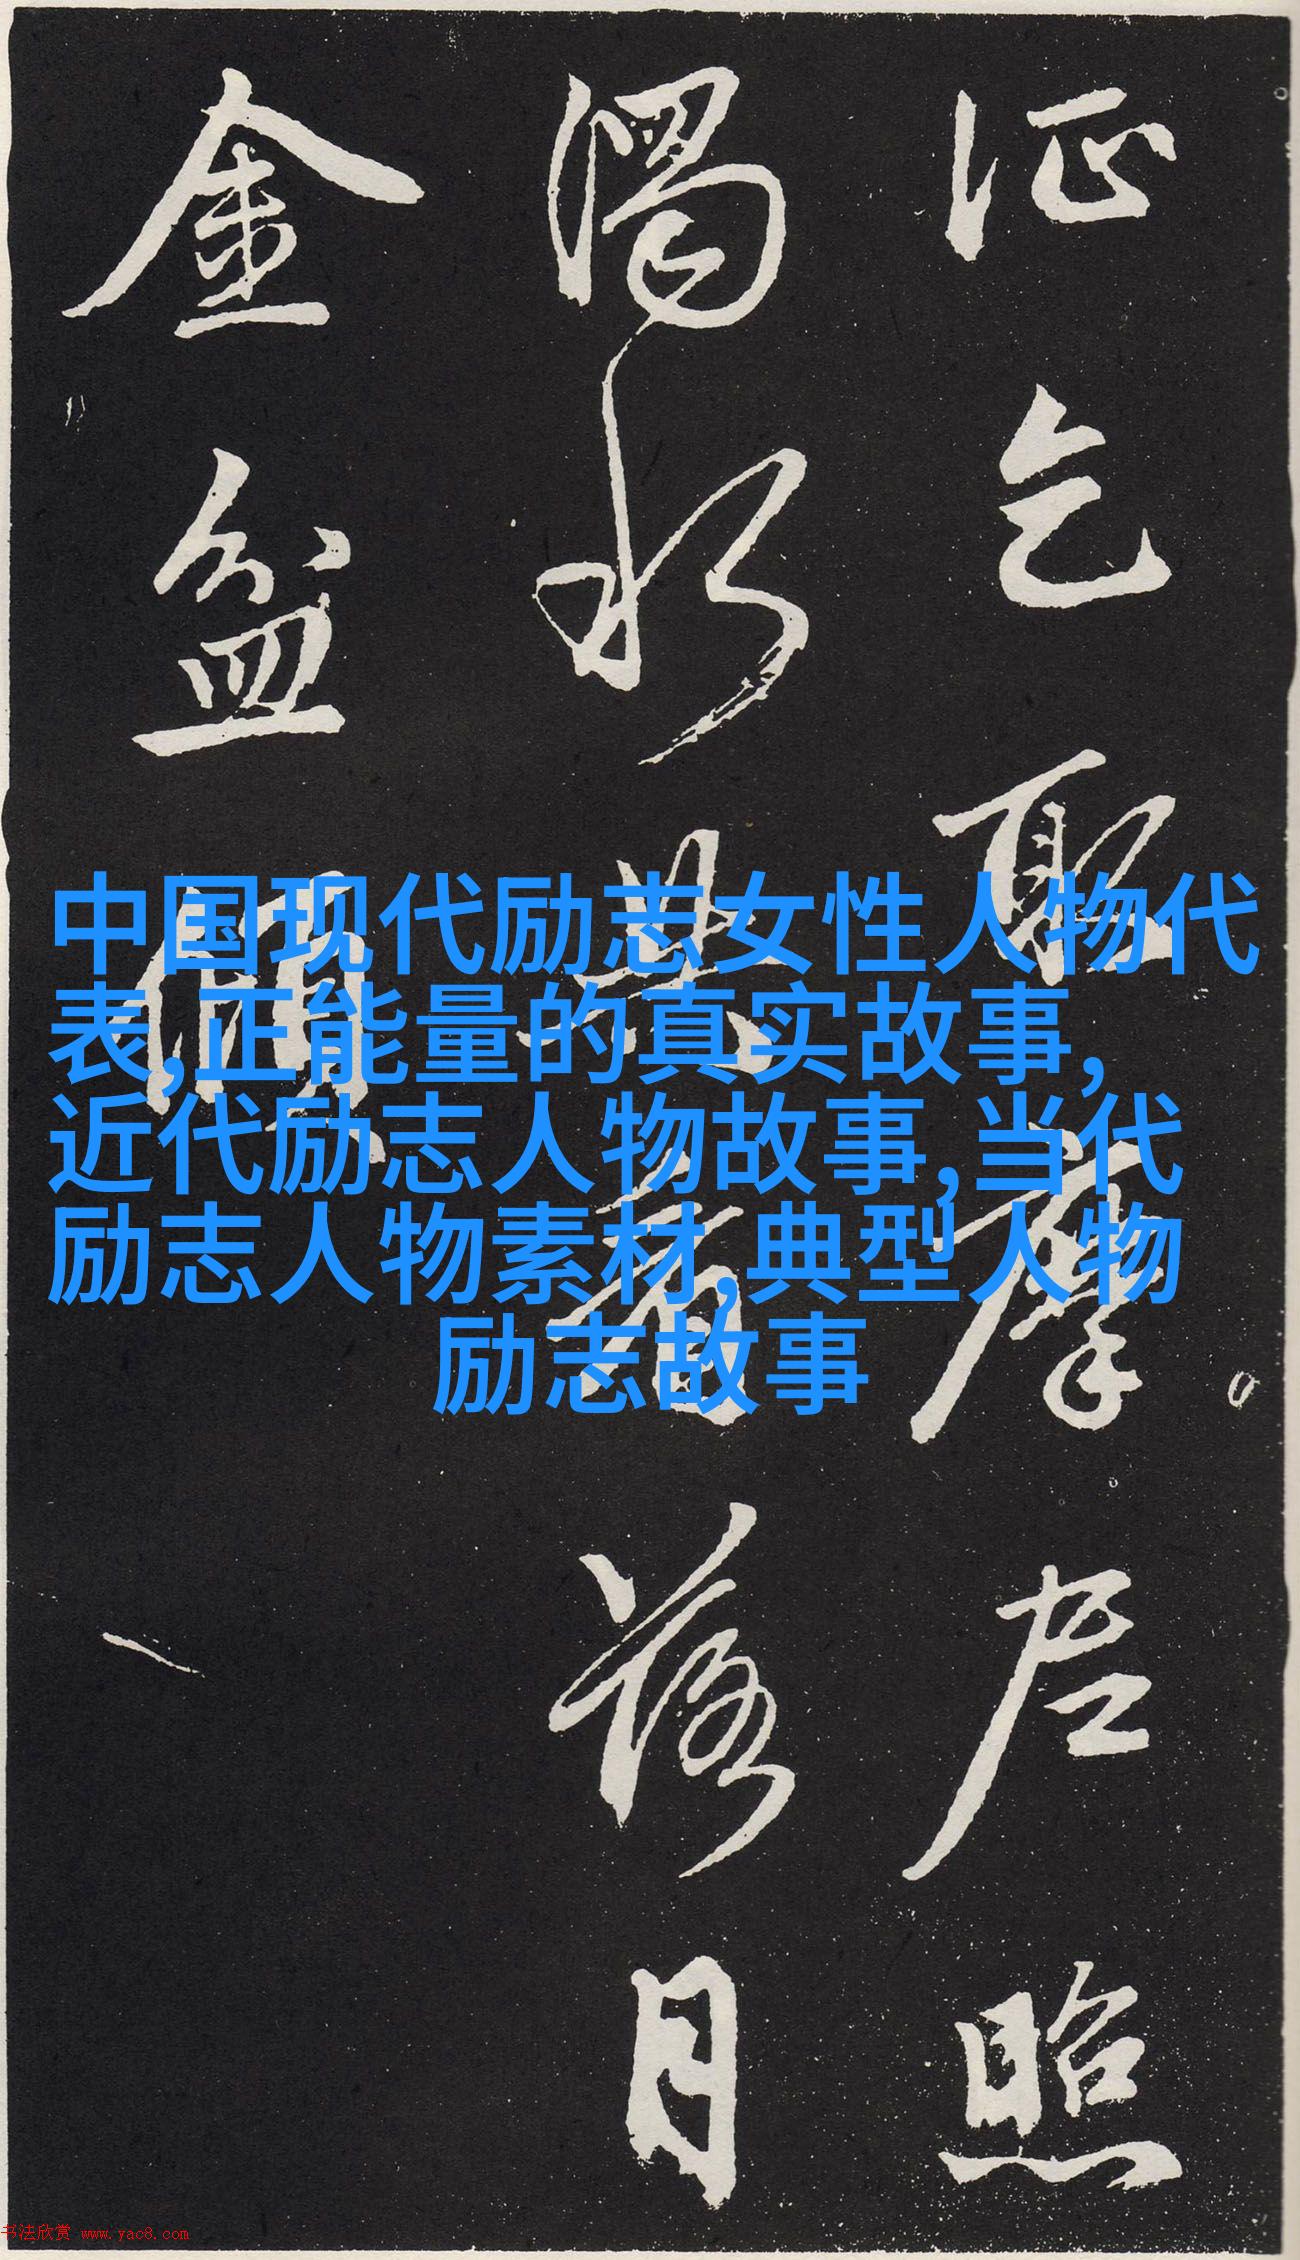 征乞取摩尼照
濁水共看落月
金盆傾
中国现代励志女性人物代
表,正能量的真实故事,
近代励志人物故事,当代
励志人物素材,典型人物
励志故事
书法欣赏 www.yac8.com